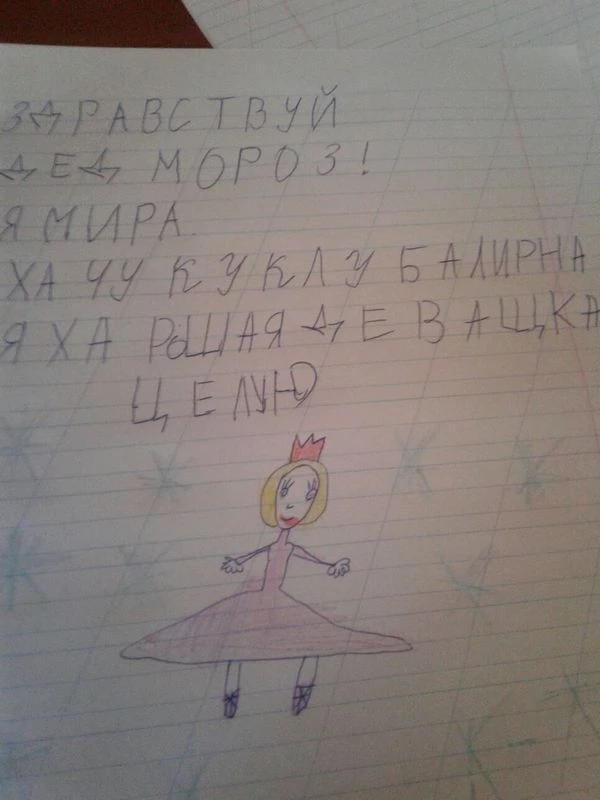 ЗДРАВСТВУЙ
ДЕД МОРОЗ!
Я МИРА.
ХАЧУ КУКЛУ БАЛИРНА
Я ХАРОШАЯ ДЕВАЩКА
ЦЕЛУЮ